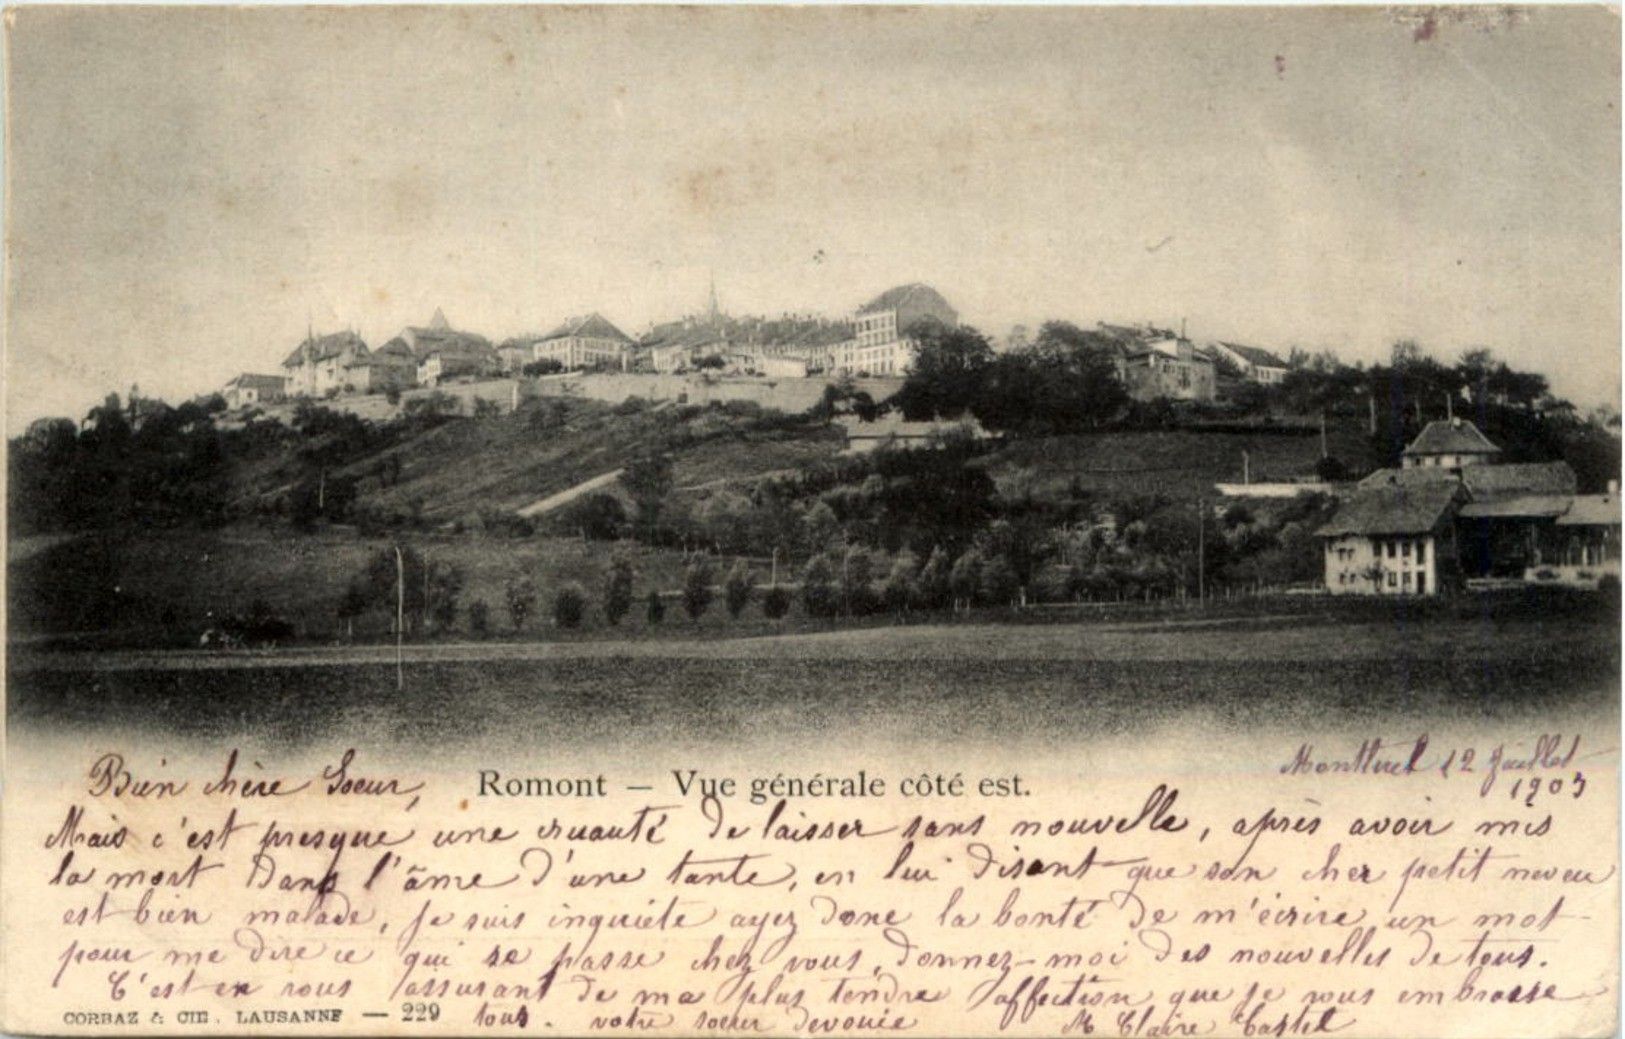 Romont — Vue générale côté est.
12 Juillet
1903
Bien chère Soeur,
Mais c'est presque une cruauté de laisser sans nouvelle, après avoir mis
la mort dans l'âme d'une tante, en lui disant que son cher petit neveu
est bien malade, je suis inquiéte ayez donc la bonté de m'écrire un mot
pour me dire ce qui se passe chez vous, donnez-moi des nouvelles de tous.
C'est en vous assurant de ma plus tendre affection que je vous embrasse
tous. votre soeur devouée
M Claire Castel
CORBAZ & CIE. LAUSANNE — 229